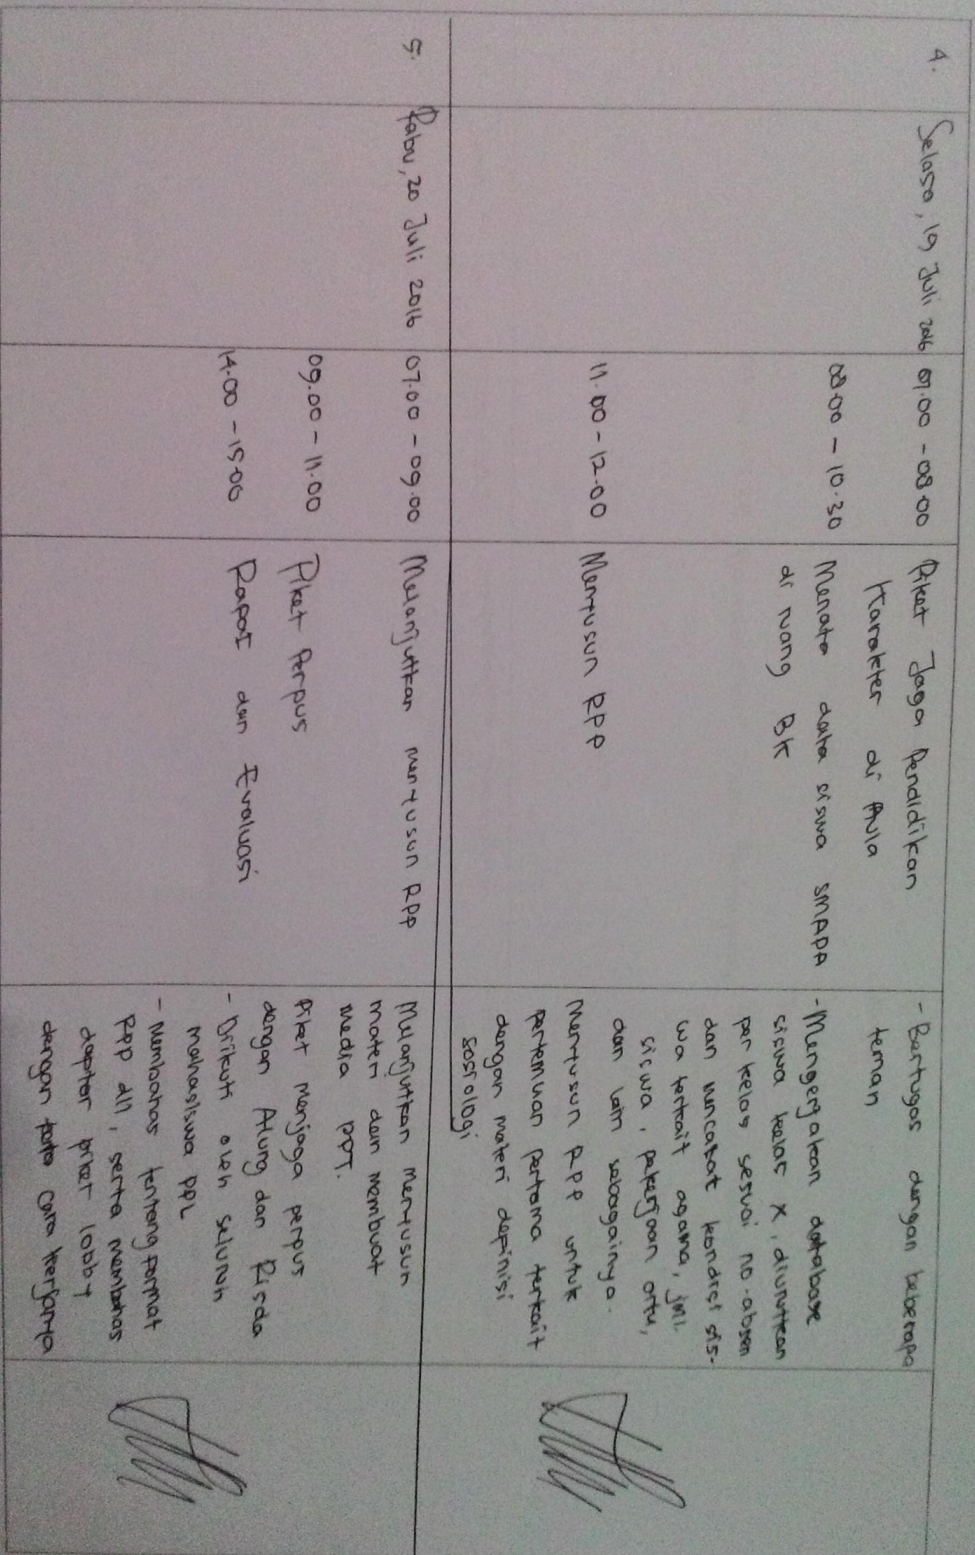 4.
Selasa, 19 Juli 2016
07.00 - 08.00
Piket Jaga Pendidikan
Karakter di Aula
- Bertugas dengan beberapa
teman
08.00 - 10.30
Menata data siswa SMAPA
di ruang BK
- Mengerjakan database
siswa kelas X, diurutkan
per kelas sesuai no-absen
dan mencatat kondisi sis-
wa terkait agama, jml.
siswa, pekerjaan ortu,
dan lain sebagainya.
11.00 - 12.00
Menyusun RPP
Menyusun RPP untuk
pertemuan pertama terkait
dengan materi definisi
sosiologi
5.
Rabu, 20 Juli 2016
07.00 - 09.00
Melanjutkan menyusun RPP
Melanjutkan menyusun
materi dan membuat
media PPT.
09.00 - 11.00
Piket Perpus
Piket menjaga perpus
dengan Alung dan Risda
14.00 - 15.00
Rapat dan Evaluasi
- Diikuti oleh seluruh
mahasiswa PPL
- Membahas tentang format
RPP dll, serta membahas
daftar piket lobby
dengan tata cara kerjanya